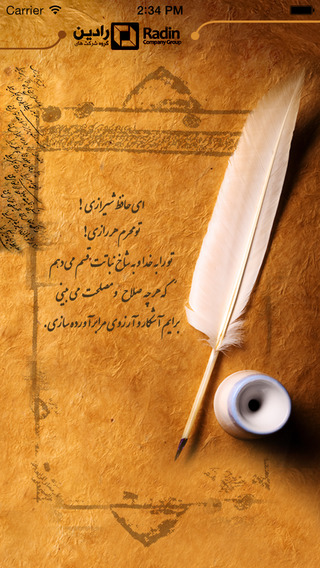 Carrier 2:34 PM
رادین Radin
گروه شرکت های Company Group
ای حافظ شیرازی !
تو محرم هر رازی !
تو را به خدا و به شاخ نباتت قسم می دهم
که هر چه صلاح و مصلحت می بینی
برایم آشکار و آرزوی مرا برآورده سازی.